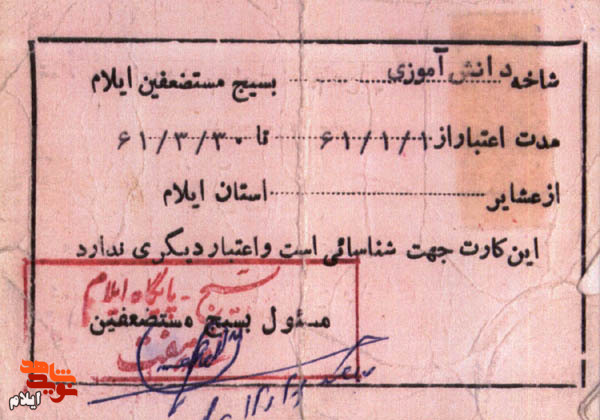 شاخه دانش آموزی بسیج مستضعفین ایلام
مدت اعتبار از ۶۱/۱/۱ تا ۶۱/۳/۳۰
از عشایر استان ایلام
این کارت جهت شناسائی است و اعتبار دیگری ندارد
بسیج - پایگاه ایلام
مسئول بسیج مستضعفین
نوید شاهد
ایلام